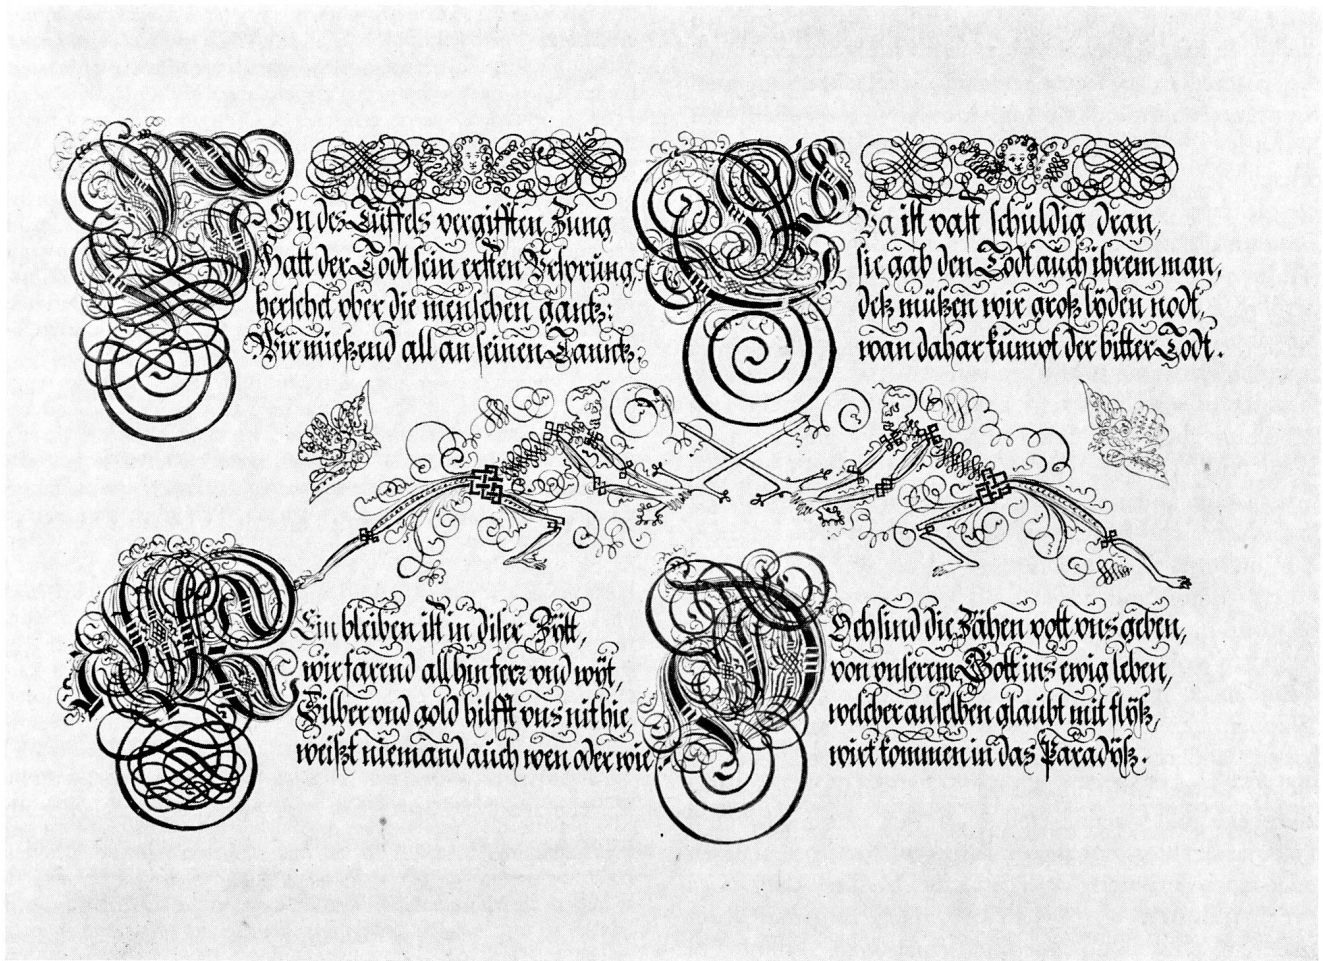 Von des Tüffels vergifften Zung
Hatt der Todt sein ersten Vrsprüng,
herschet vber die menschen gantz:
Wir mießend all an seinen Tanntz.
Eva ist vast schuldig dran,
sie gab den Todt auch ihrem man,
deß müßen wir groß lyden nodt,
wan dahar kumpt der bitter Todt.
Kein bleiben ist in diser Zytt,
wir farend all hin ferr vnd wyt,
Silber vnd gold hilfft vns nit hie,
weißt niemand auch wen oder wie.
Doch sind die Zähen vott vns geben,
von vnserem Gott ins ewig leben,
welcher an selben glaubt mit flyß,
wirt kommen in das Paradyß.